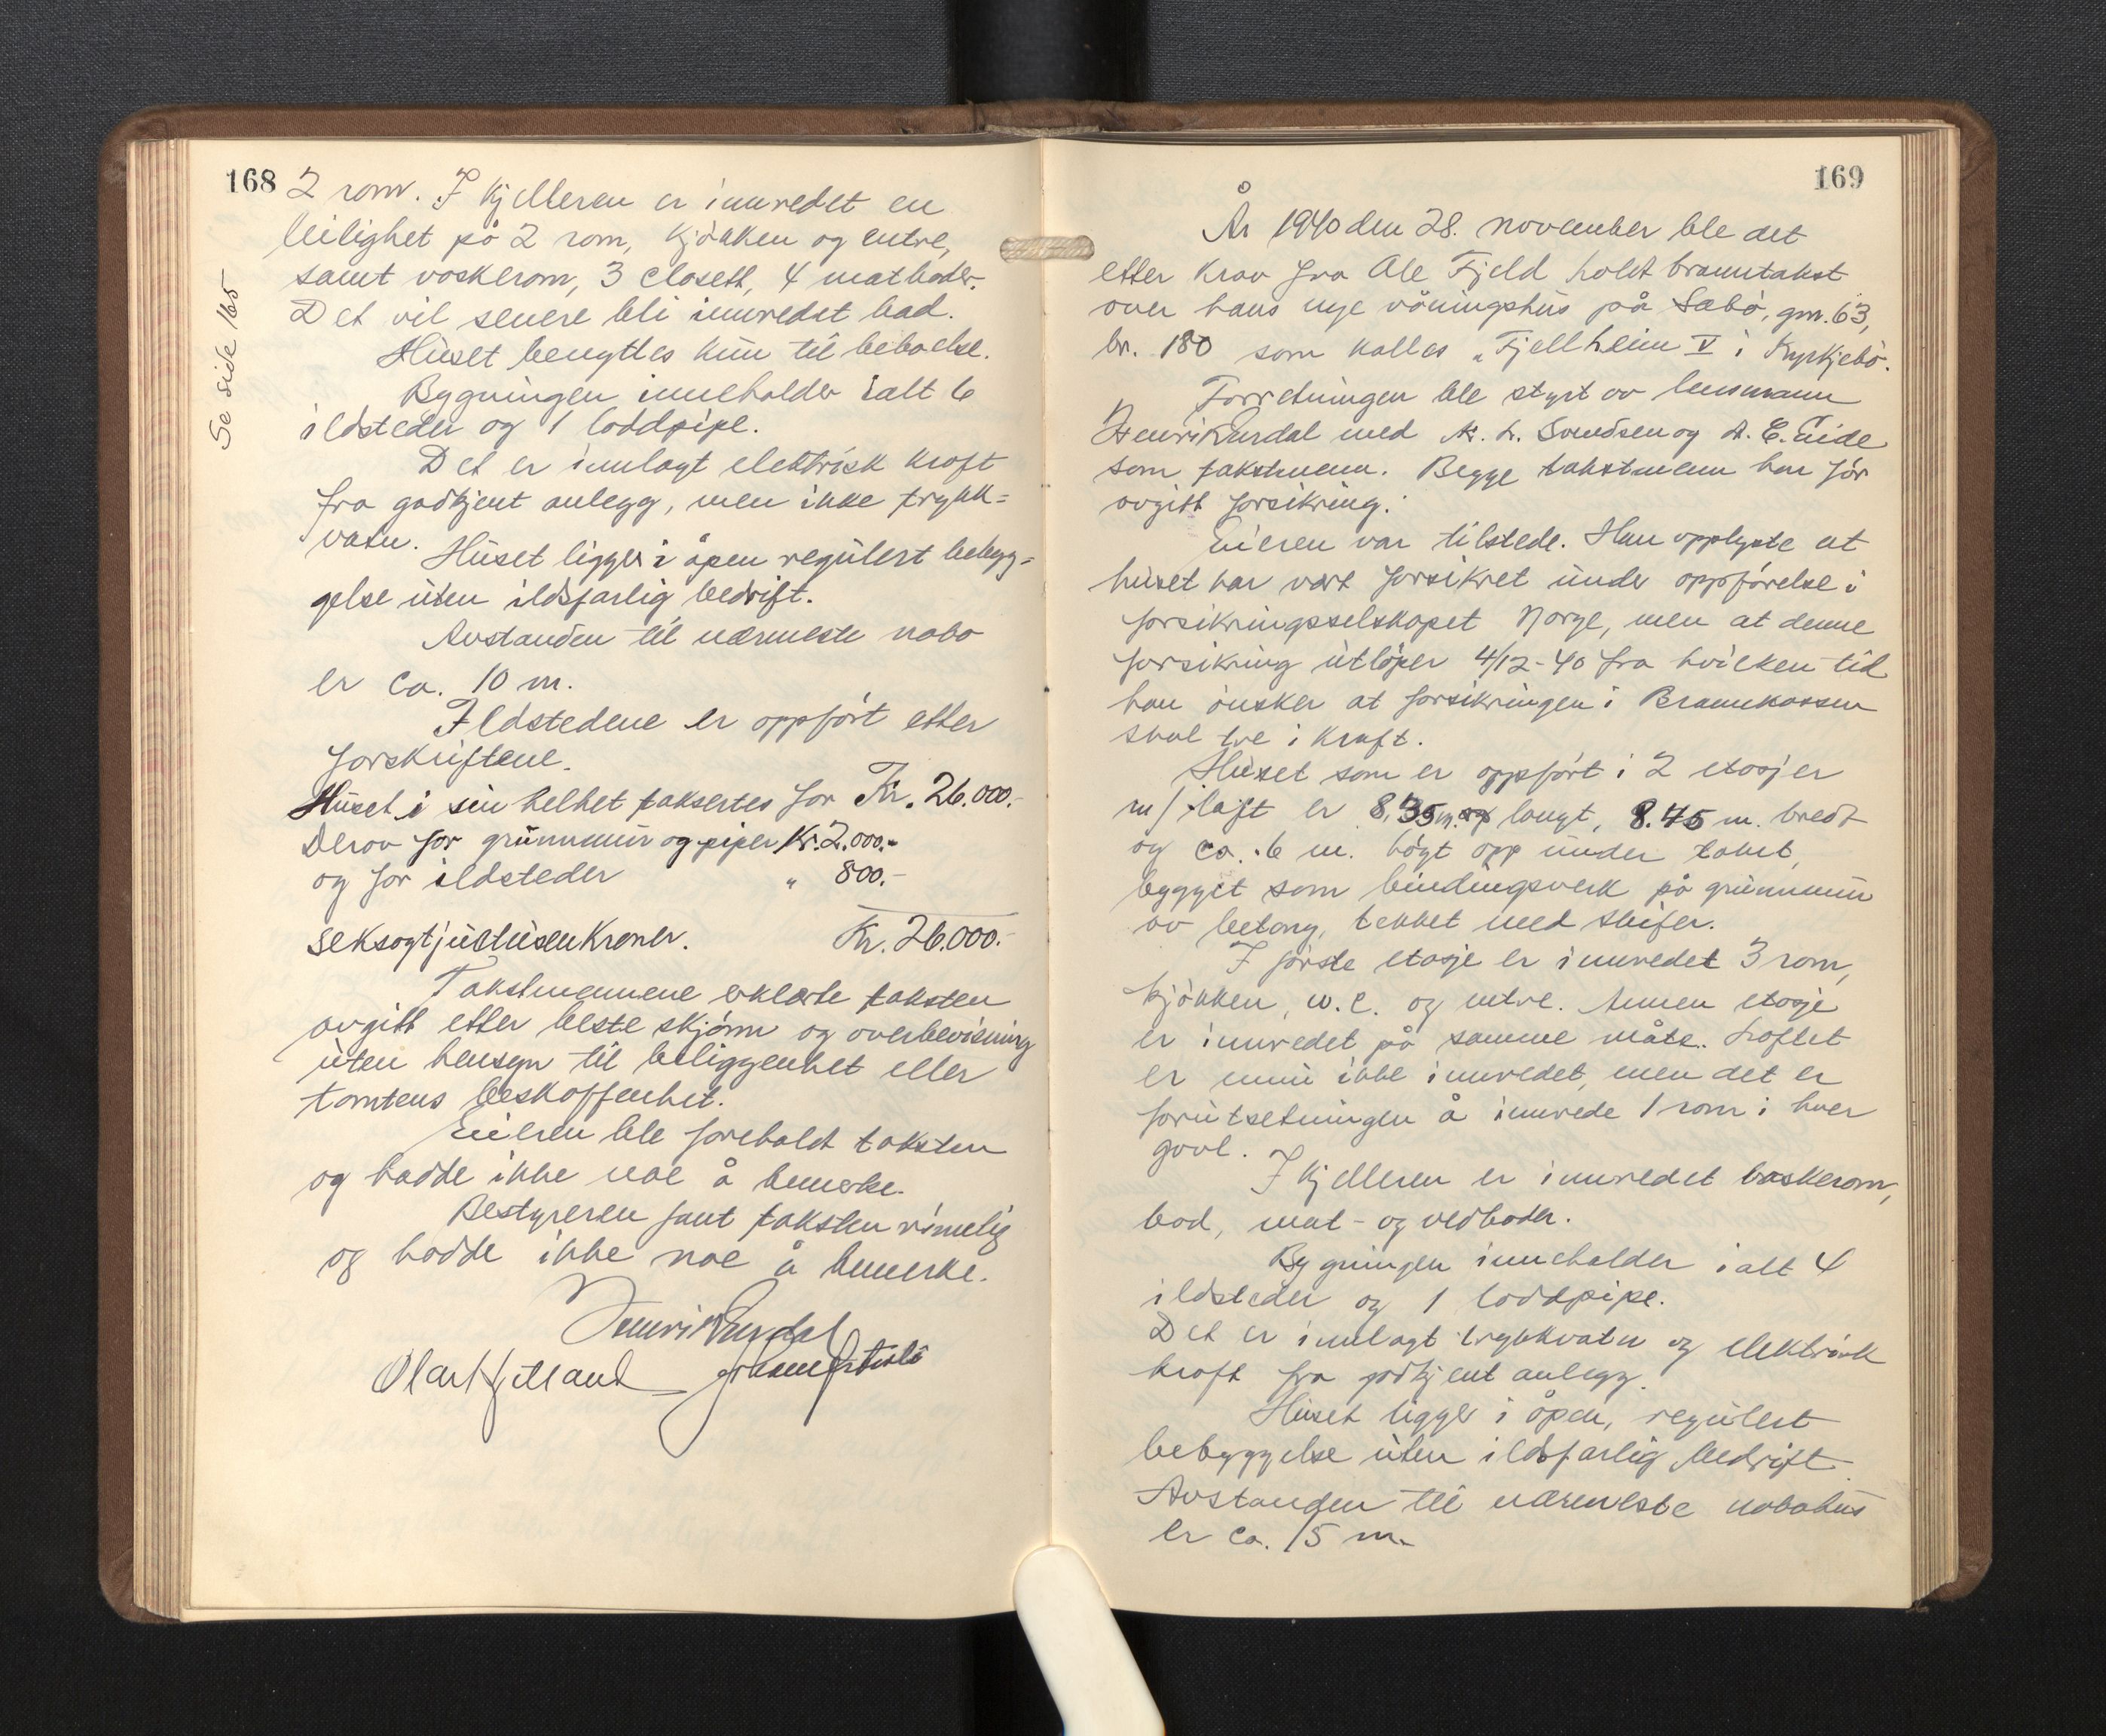 168
2 rom. I kjelleren er innredet en
leilighet på 2 rom, kjökken og entre,
samt vaskerom, 3 closett, 4 matboder.
Det vil senere bli innredet bad.
Huset benyttes kun til beboelse.
Bygningen inneholder ialt 6
ildsteder og 1 loddpipe.
Det er innlagt elektrisk kraft
fra godkjent anlegg, men ikke trykk=
vatn.
Huset ligger i åpen regulert bebyg=
gelse uten ildsfarlig bedrift.
Avstanden til nærmeste nabo
er ca. 10 m.
Ildstedene er oppfört etter
forskriftene.
Huset i sin helhet taksertes for Kr. 26.000.-
Derav for grunnmur og piper Kr. 2.000.-
og for ildsteder " 800.-
seksogtjuetusenkroner. Kr. 26.000.-
Takstmennene erklærte taksten
avgitt etter beste skjönn og overbevisning
uten hensyn til beliggenhet eller
tomtens beskaffenhet.
Eieren ble foreholdt taksten
og hadde ikke noe å bemerke.
Bestyreren fant taksten rimelig
og hadde ikke noe å bemerke.
Henrik Eurdal
Olar Hjetland
Se side 165
169
År 1940 den 28. november ble det
etter krav fra Ole Fjeld holdt branntakst
over hans nye våningshus på Sæbö, gnr. 63,
br. 180 som kalles „Fjellheim V i Kyrkjebö.
Forretningen ble styrt av lensmann
Henrik Eurdal med A. L. Svendsen og A. E. Eide
som takstmenn. Begge takstmenn har för
avgitt forsikring.
Eieren var tilstede. Han opplyste at
huset har vært forsikret under oppförelse i
forsikringsselskapet Norge, men at denne
forsikring utlöper 4/12-40 fra hvilken tid
han önsker at forsikringen i Brannkassen
skal tre i kraft.
Huset som er oppfört i 2 etasjer
m/ laft er 8,35 m. langt, 8.45 m. bredt
og ca. 6 m. högt opp under taket,
bygget som bindingsverk på grunnmur
av betong, tekket med skifer.
I förste etasje er innredet 3 rom,
kjökken, w.c. og entre. Annen etasje
er innredet på samme måte. Loftet
er ennu ikke innredet, men det er
forutsetningen å innrede 1 rom i hver
gavl.
I kjelleren er innredet vaskerom,
bod, mat- og vedboder.
Bygningen inneholder ialt 4
ildsteder og 1 loddpipe.
Det er innlagt trykkvatn og elektrisk
kraft fra godkjent anlegg.
Huset ligger i åpen, regulert
bebyggelse uten ildsfarlig bedrift.
Avstanden til nærmeste nabohus
er ca. 15 m.